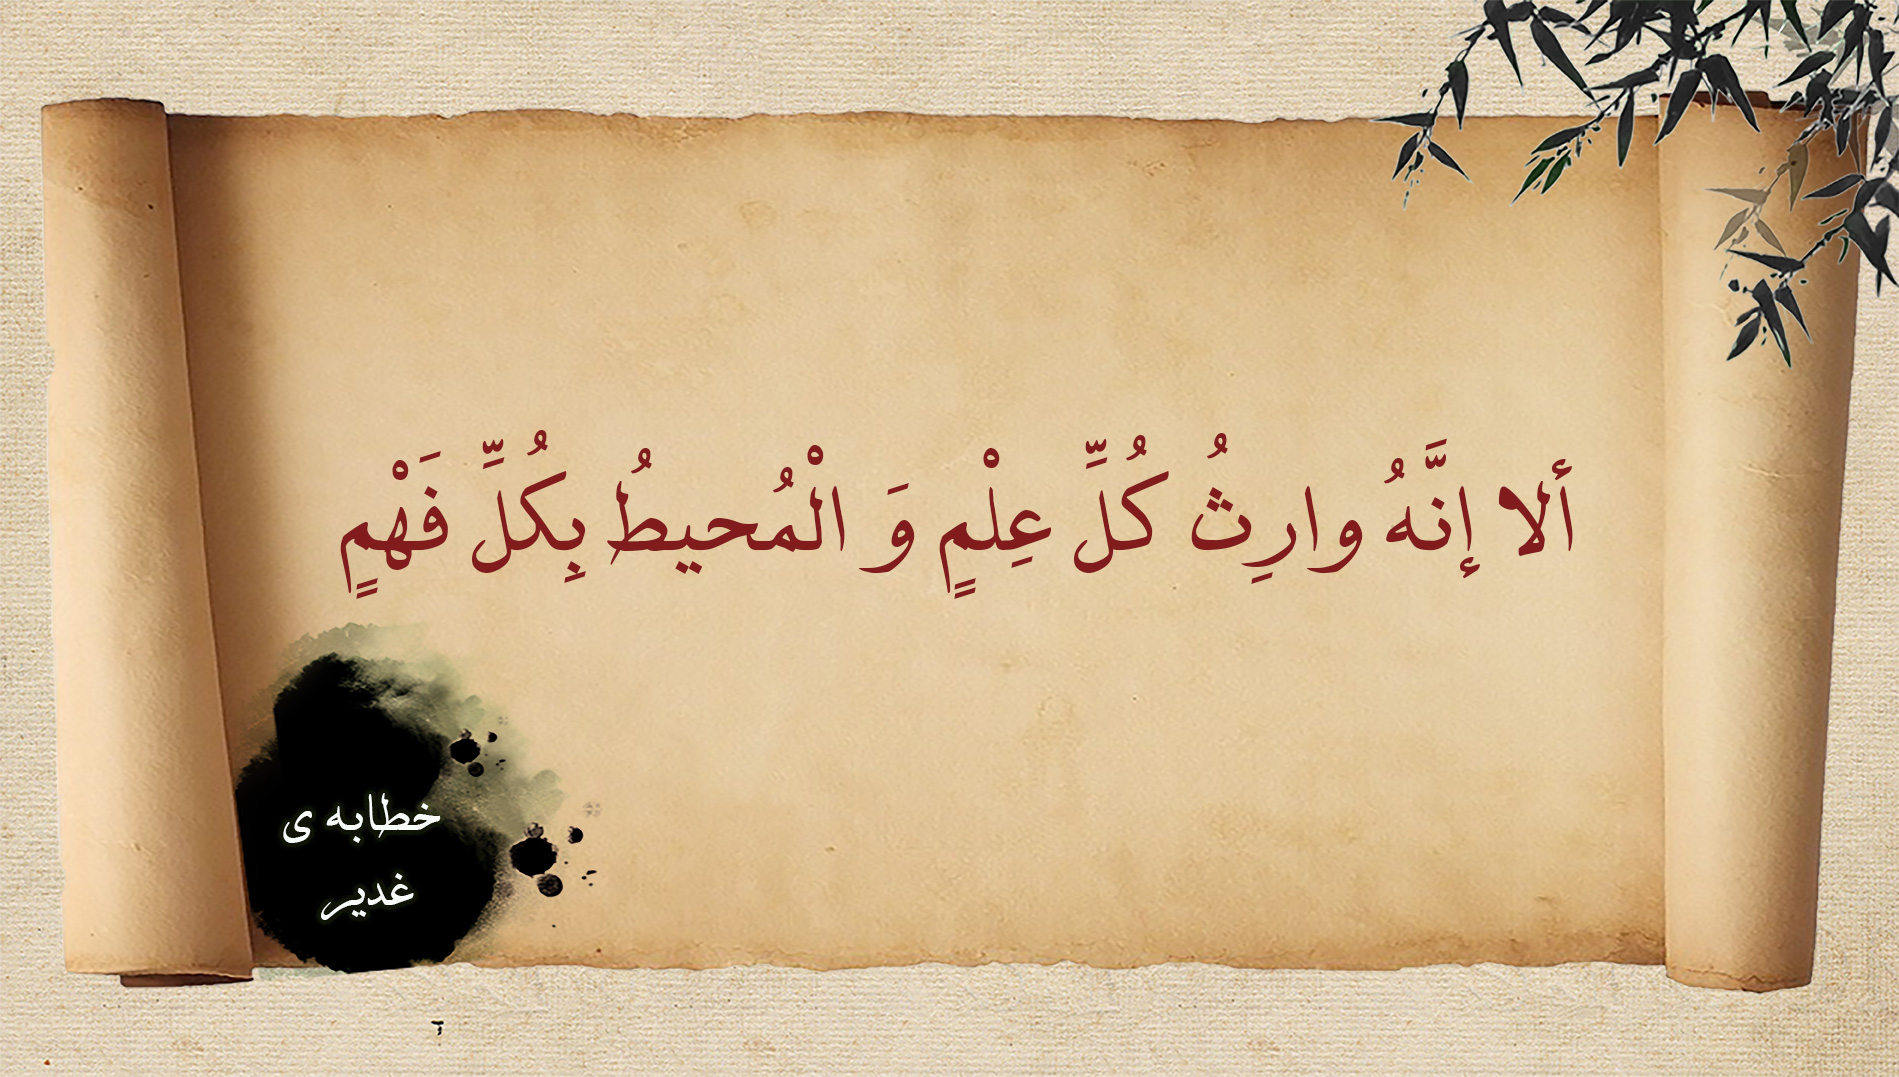 ألا إنَّهُ وارِثُ كُلِّ عِلْمٍ وَ الْمُحيطُ بِكُلِّ فَهْمٍ
خطابه ی
غدیر